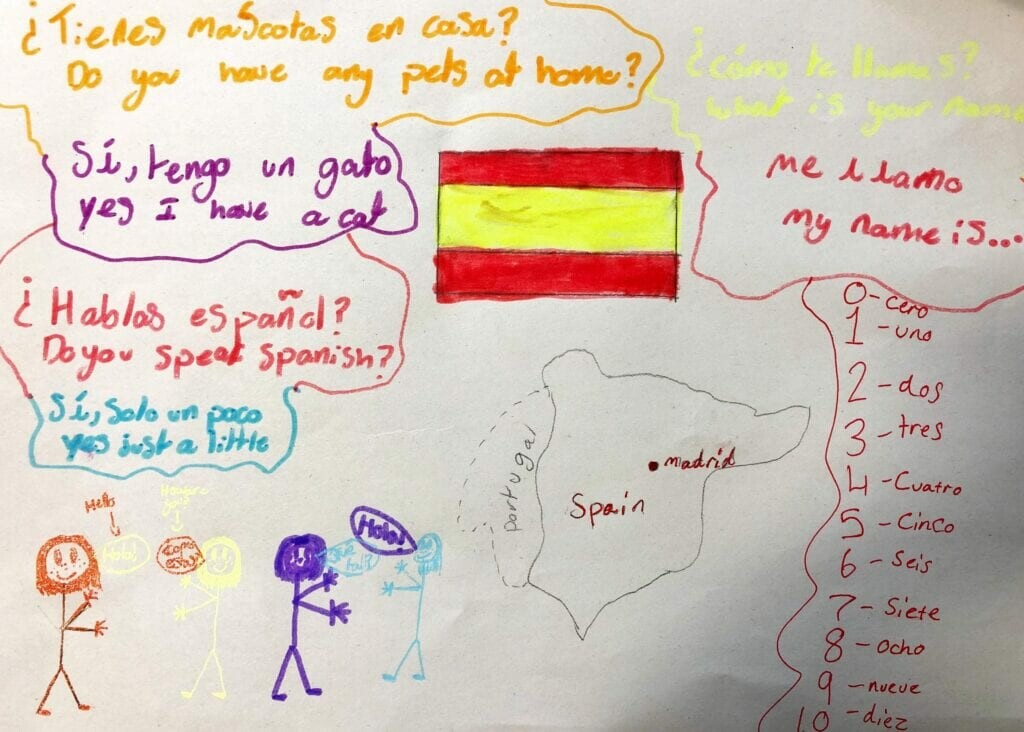 ¿Tienes mascotas en casa?
Do you have any pets at home?
¿cómo te llamas?
what is your name
Sí, tengo un gato
yes I have a cat
me llamo
my name is...
¿Hablas español?
Do you speak Spanish?
Sí, solo un poco
yes just a little
0 - cero
1 - uno
2 - dos
3 - tres
4 - Cuatro
5 - Cinco
6 - Seis
7 - Siete
8 - ocho
9 - nueve
10 - diez
Portugal
madrid
Spain
Hello
Hola!
Como
estas?
Hola!